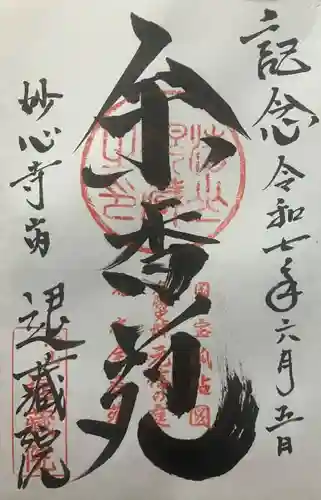 記念 令和七年六月五日
余香苑
国宝瓢鮎図
妙心寺内
退蔵院